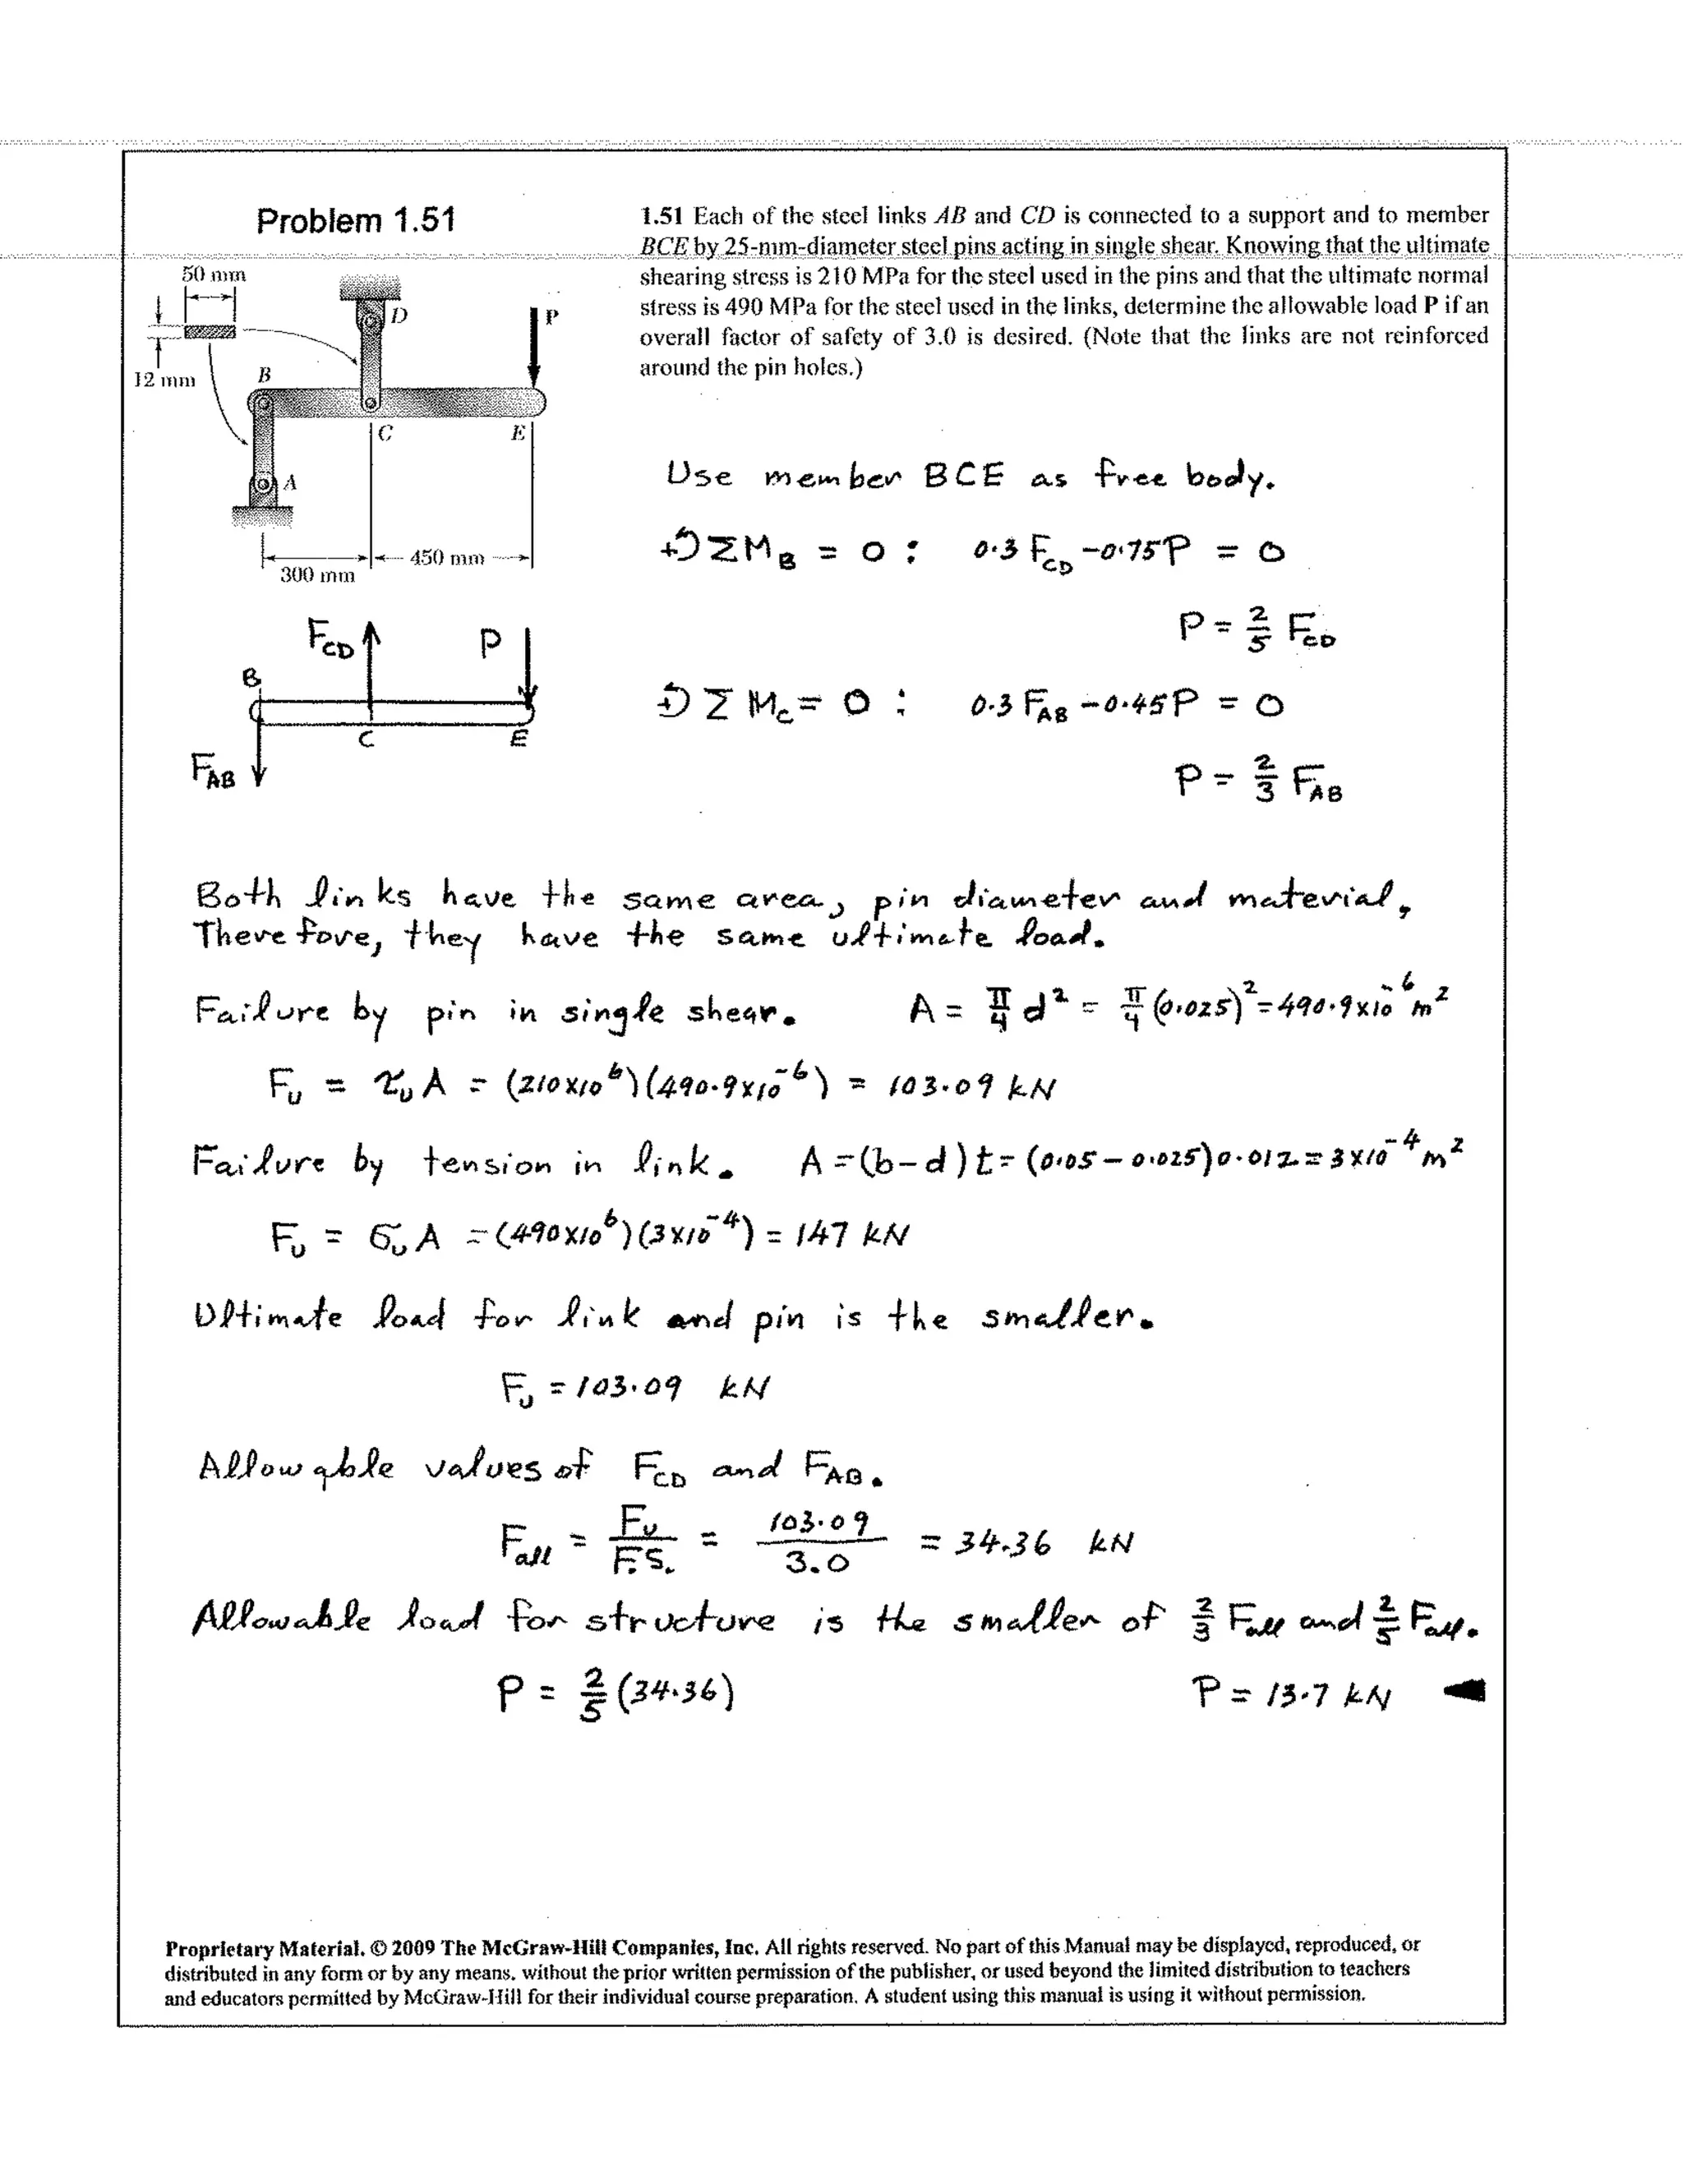 Problem 1.51
1.51 Each of the steel links AB and CD is connected to a support and to member
BCE by 25-mm-diameter steel pins acting in single shear. Knowing that the ultimate
shearing stress is 210 MPa for the steel used in the pins and that the ultimate normal
stress is 490 MPa for the steel used in the links, determine the allowable load P if an
overall factor of safety of 3.0 is desired. (Note that the links are not reinforced
around the pin holes.)
50 mm
D
P
12 mm
B
C
E
A
450 mm
300 mm
Use member BCE as free body.
+↺ΣM_B = 0 : 0.3 F_CD -0.75P = 0
P = 2/5 F_CD
+↺ΣM_C = 0 : 0.3 F_AB -0.45P = 0
P = 2/3 F_AB
F_CD
P
B
C
E
F_AB
Both links have the same area, pin diameter and material,
Therefore, they have the same ultimate load.
Failure by pin in single shear. A = π/4 d² = π/4 (0.025)² = 490.9x10⁻⁶ m²
F_U = τ_U A = (210x10⁶)(490.9x10⁻⁶) = 103.09 kN
Failure by tension in link. A = (b-d)t = (0.05 - 0.025)0.012 = 3x10⁻⁴ m²
F_U = σ_U A = (490x10⁶)(3x10⁻⁴) = 147 kN
Ultimate load for link and pin is the smaller.
F_U = 103.09 kN
Allowable values of F_CD and F_AB.
F_all = F_U/F.S. = 103.09/3.0 = 34.36 kN
Allowable load for structure is the smaller of 2/3 F_all and 2/5 F_all.
P = 2/5 (34.36) P = 13.7 kN ◄
Proprietary Material. © 2009 The McGraw-Hill Companies, Inc. All rights reserved. No part of this Manual may be displayed, reproduced, or
distributed in any form or by any means, without the prior written permission of the publisher, or used beyond the limited distribution to teachers
and educators permitted by McGraw-Hill for their individual course preparation. A student using this manual is using it without permission.